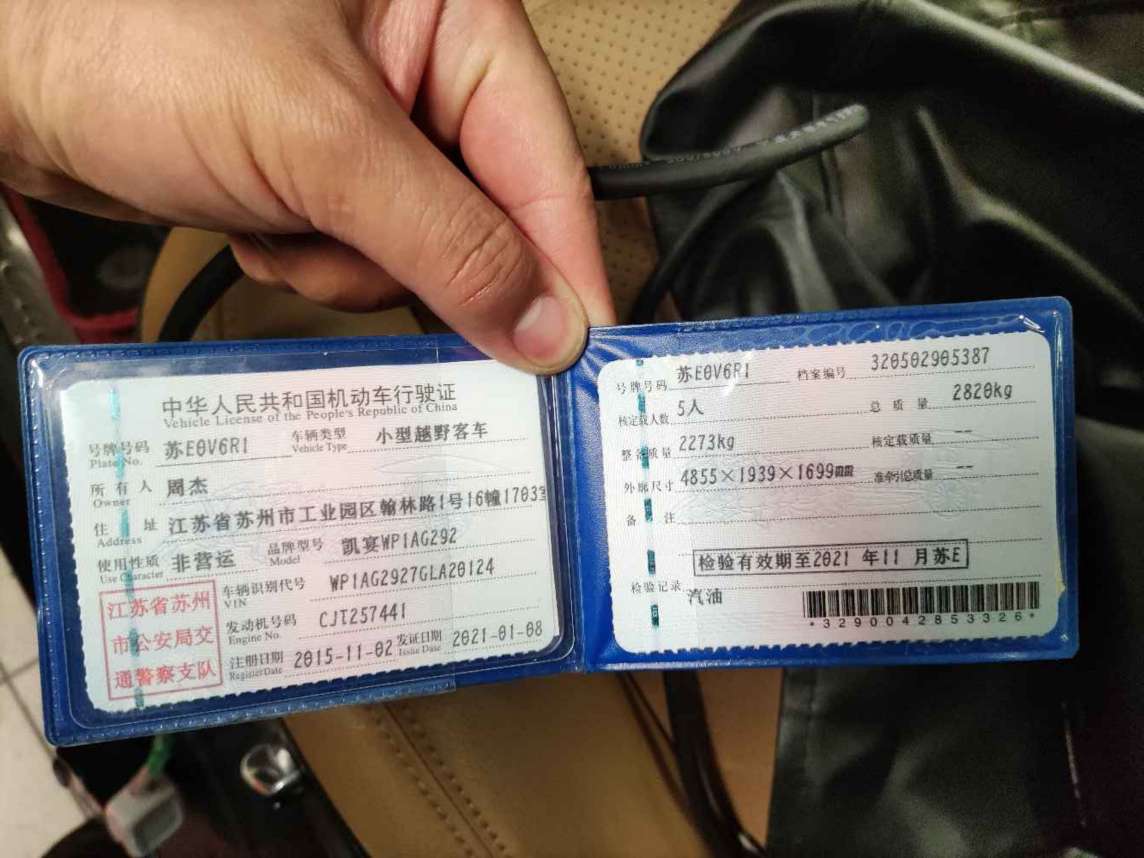 中华人民共和国机动车行驶证
Vehicle License of the People's Republic of China
号牌号码 Plate No. 苏E0V6R1 车辆类型 Vehicle Type 小型越野客车
所有人 Owner 周杰
住址 Address 江苏省苏州市工业园区翰林路1号16幢1703室
使用性质 Use Character 非营运 品牌型号 Model 凯宴WP1AG292
车辆识别代号 VIN WP1AG2927GLA20124
发动机号码 Engine No. CJT257441
注册日期 Register Date 2015-11-02 发证日期 Issue Date 2021-01-08
江苏省苏州
市公安局交
通警察支队
号牌号码 苏E0V6R1 档案编号 320502905387
核定载人数 5人 总质量 2820kg
整备质量 2273kg 核定载质量 --
外廓尺寸 4855×1939×1699mm 准牵引总质量 --
备注
检验有效期至2021年11月苏E
检验记录
汽油
*3290042853326*